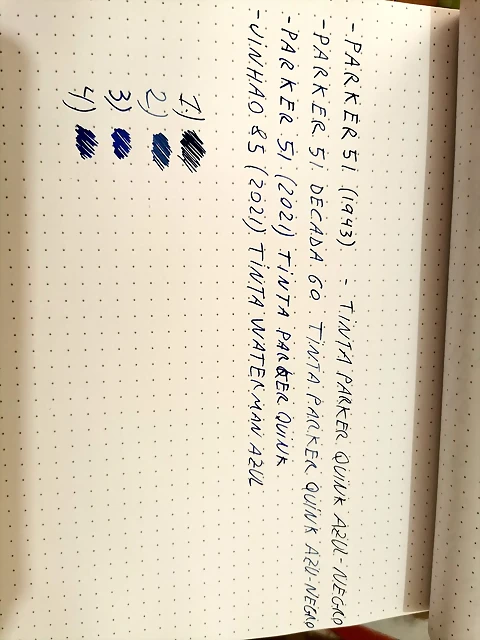 - PARKER 51 (1943). - TINTA PARKER QUINK AZUL-NEGRO
- PARKER 51 DECADA 60 TINTA PARKER QUINK AZU-NEGRO
- PARKER 51 (2021) TINTA PARKER QUINK
- JINHAO 85 (2021) TINTA WATERMAN AZUL
1)
2)
3)
4)